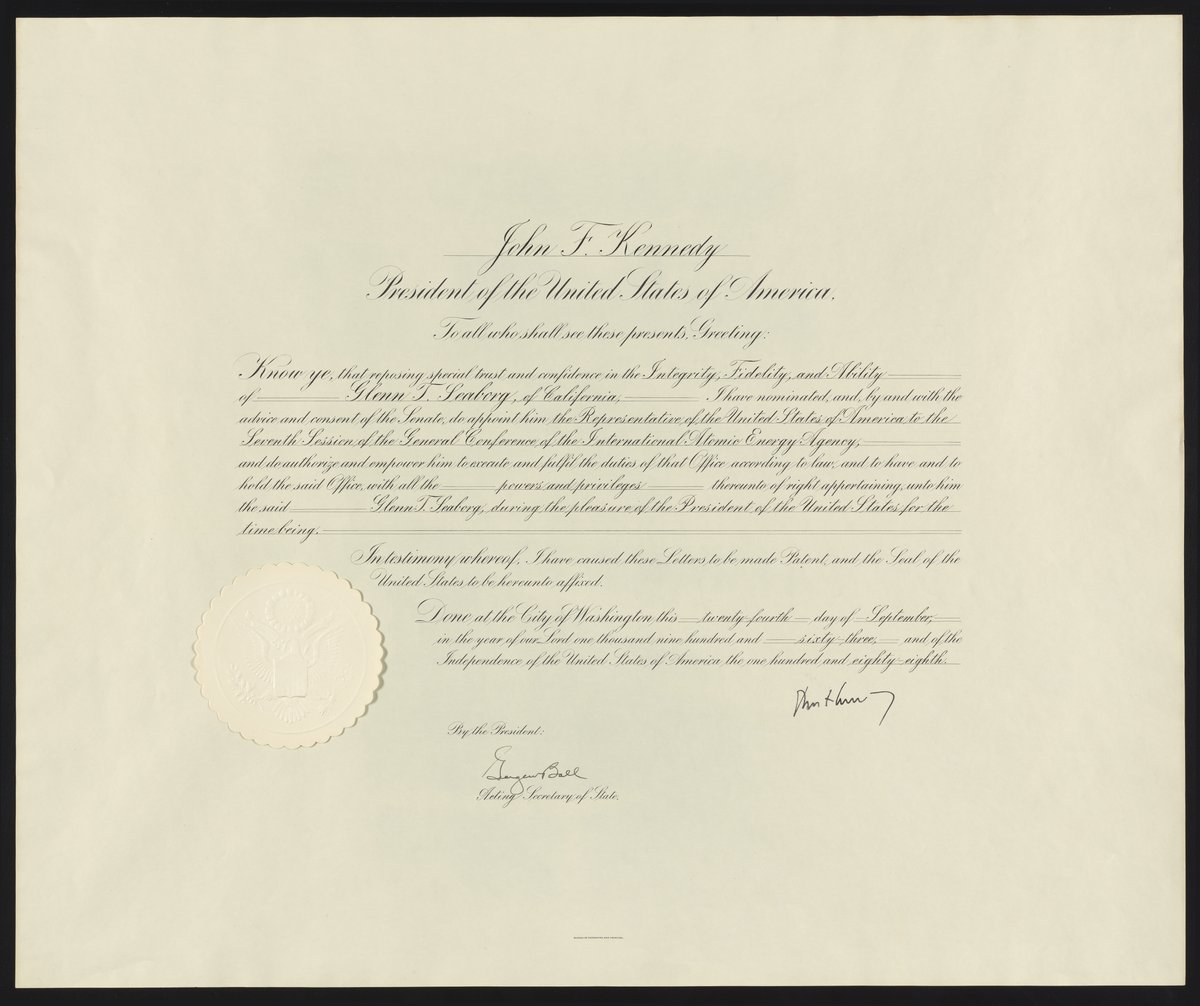 John F. Kennedy
President of the United States of America.
To all who shall see these presents, Greeting:
Know ye, that reposing special trust and confidence in the Integrity, Fidelity, and Ability
of Glenn T. Seaborg, of California, I have nominated, and, by and with the
advice and consent of the Senate, do appoint him the Representative of the United States of America to the
Seventh Session of the General Conference of the International Atomic Energy Agency,
and do authorize and empower him to execute and fulfil the duties of that Office according to law, and to have and to
hold the said Office, with all the powers and privileges thereunto of right appertaining, unto him
the said Glenn T. Seaborg, during the pleasure of the President of the United States for the
time being.
In testimony whereof, I have caused these Letters to be made Patent, and the Seal of the
United States to be hereunto affixed.
Done at the City of Washington this twenty-fourth day of September,
in the year of our Lord one thousand nine hundred and sixty-three, and of the
Independence of the United States of America the one hundred and eighty-eighth.
By the President:
George W Ball
Acting Secretary of State.
BUREAU OF ENGRAVING AND PRINTING.